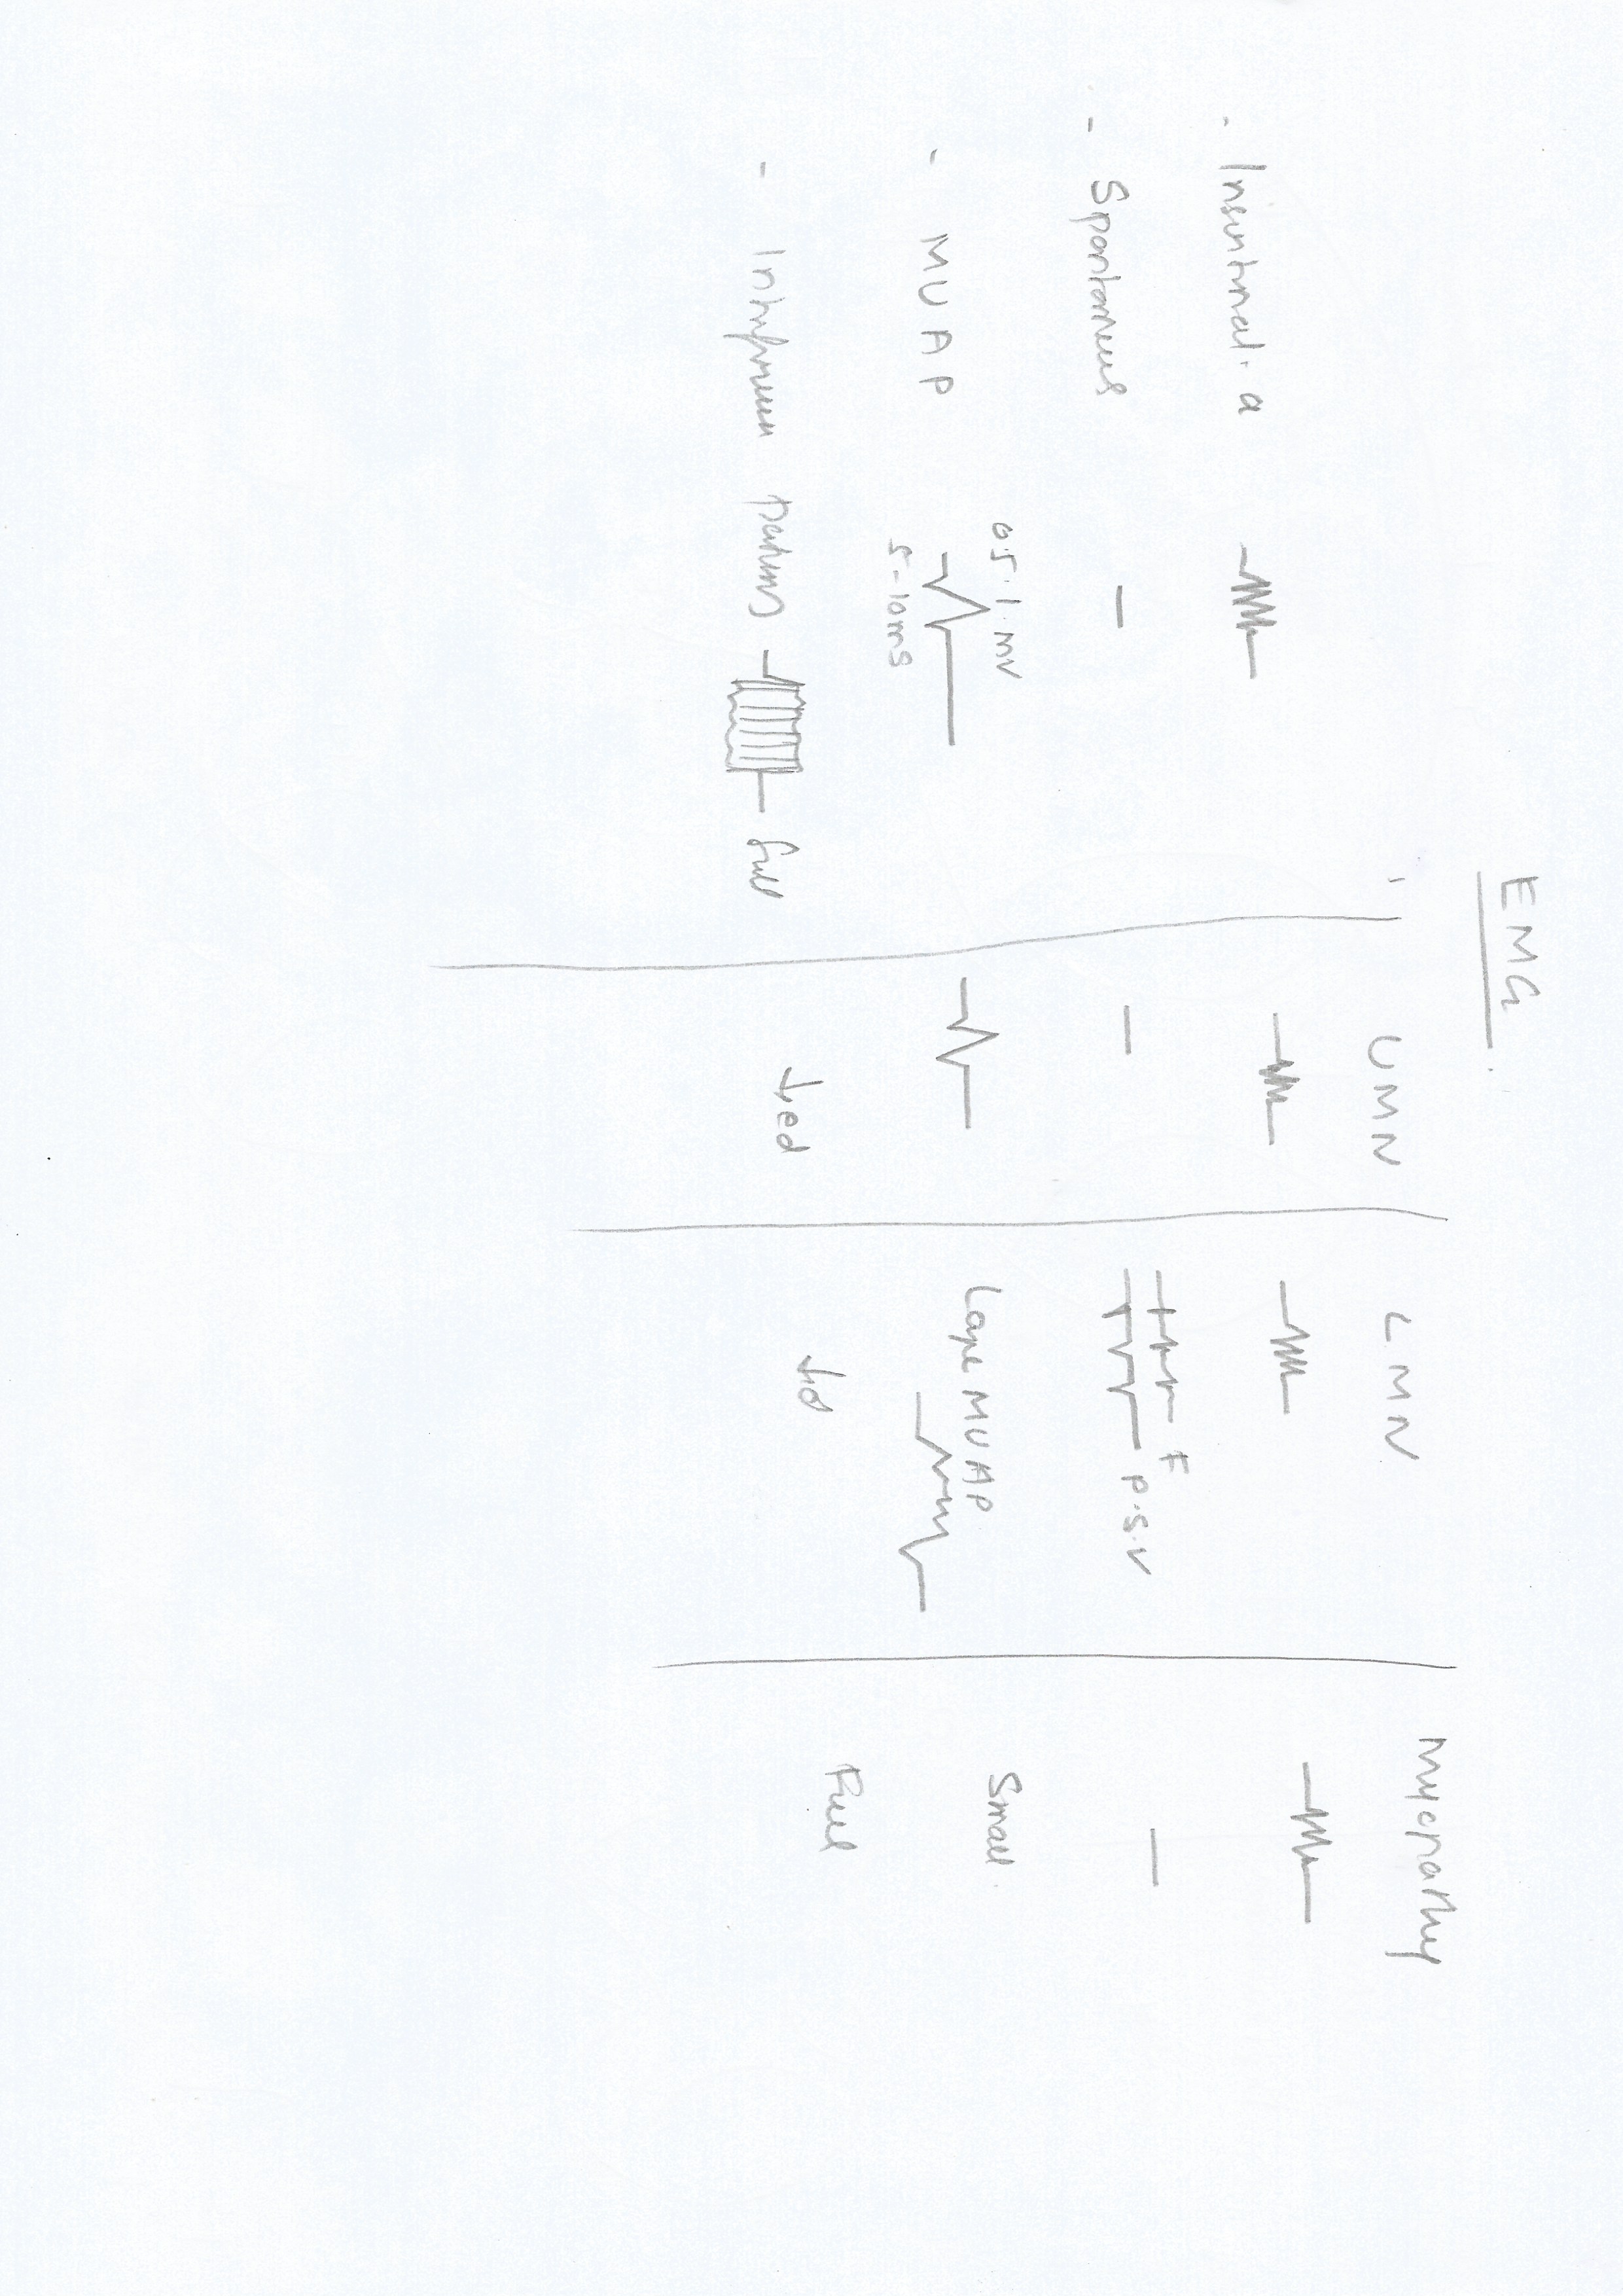 EMG
UMN LMN Myopathy
- Insertional. a
- Spontaneous - - F -
P.S.V
- MUAP 0.5-1 mv Large MUAP Small
5-10ms
- Interference pattern full ↓ed ↓d Full